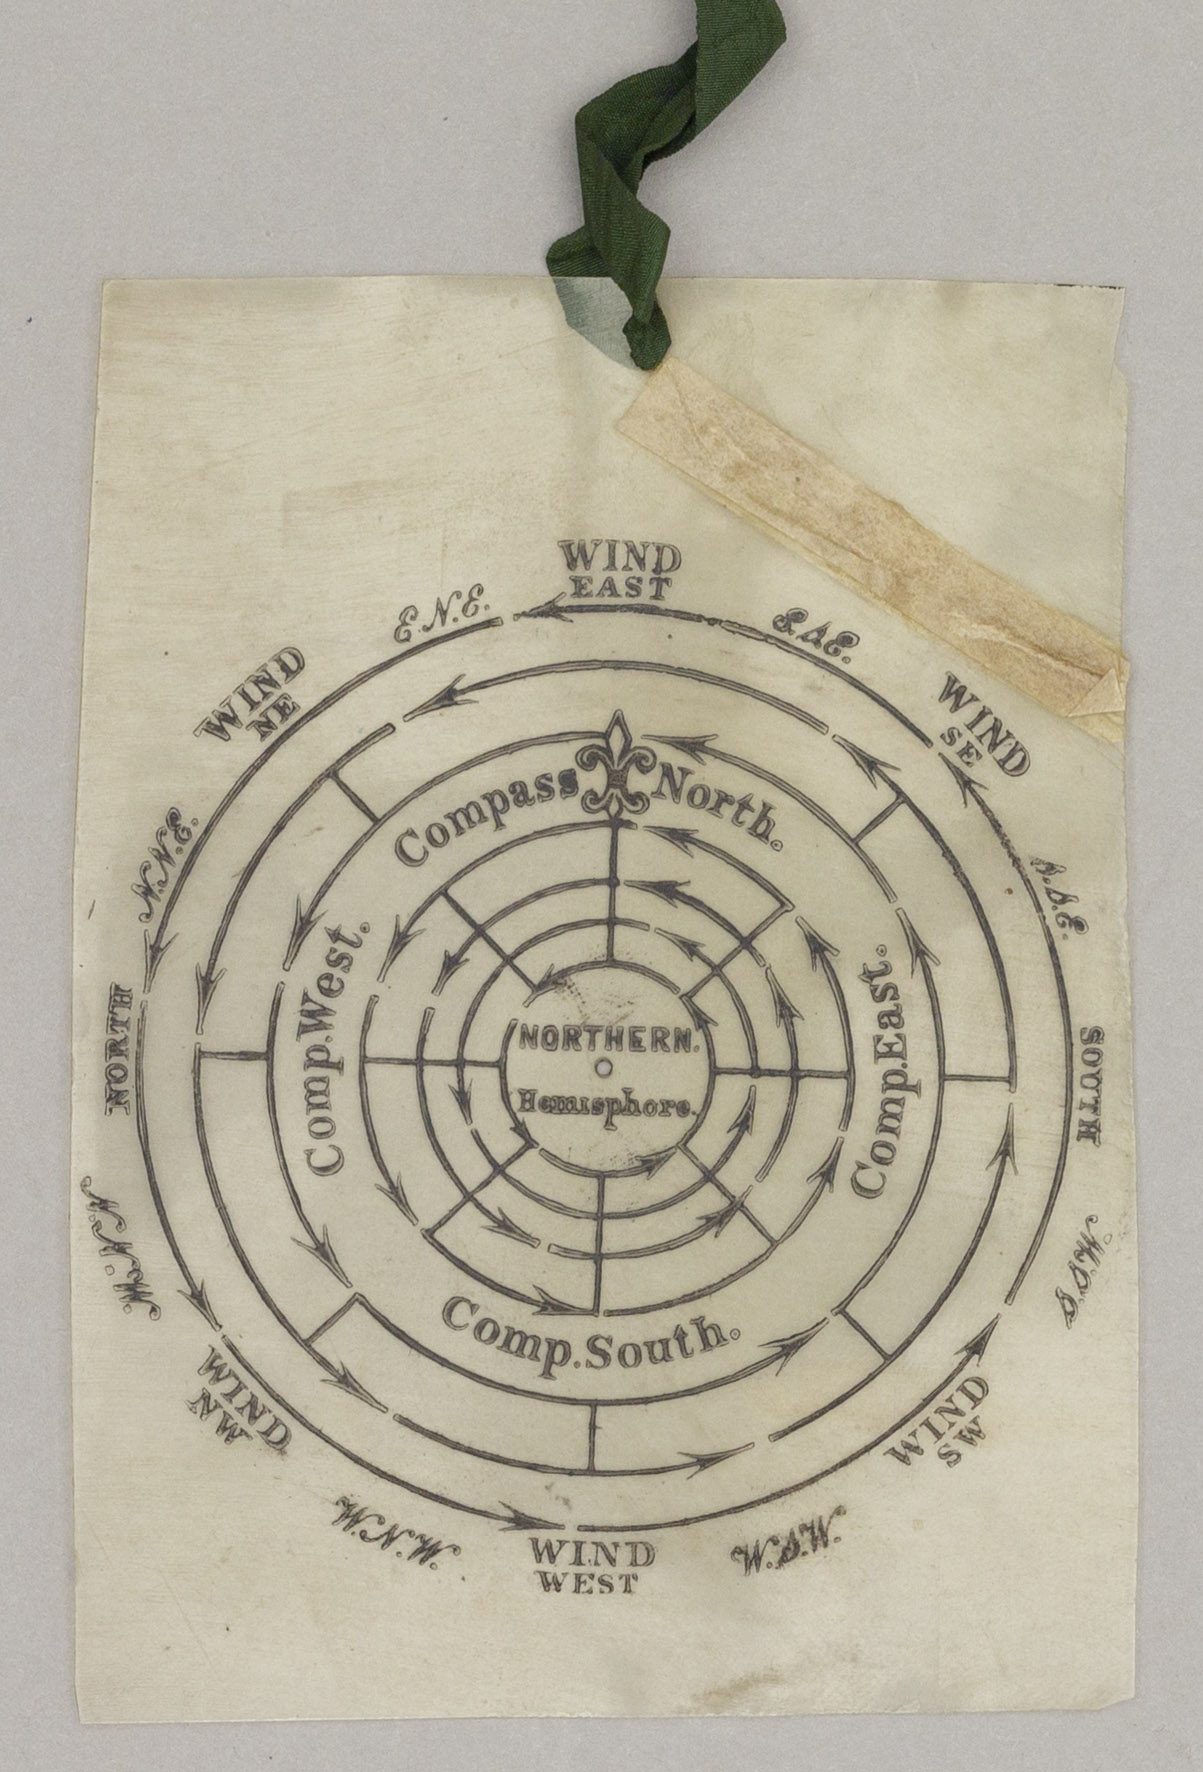 WIND
EAST
E.N.E.
E.S.E.
WIND
NE
WIND
SE
N.N.E.
S.S.E.
Compass North.
Comp.West.
Comp.East.
NORTH
SOUTH
NORTHERN.
Hemisphere.
N.N.W.
S.S.W.
Comp.South.
WIND
NW
WIND
SW
W.N.W.
W.S.W.
WIND
WEST